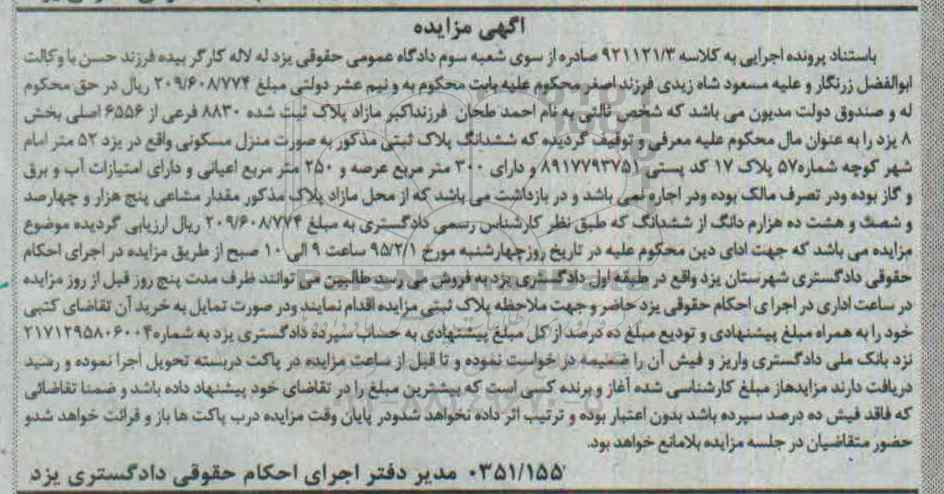 آگهی مزایده
باستناد پرونده اجرایی به کلاسه ۹۲۱۱۲۱/۳ صادره از سوی شعبه سوم دادگاه عمومی حقوقی یزد له لاله کارگر بیده فرزند حسن با وکالت
ابوالفضل زرنگار و علیه مسعود شاه زیدی فرزند اصغر محکوم علیه بابت محکوم به و نیم عشر دولتی مبلغ ۲۰۹/۶۰۸/۷۷۴ ریال در حق محکوم
له و صندوق دولت مدیون می باشد که شخص ثالثی به نام احمد طحان فرزند اکبر مازاد پلاک ثبت شده ۸۸۳۰ فرعی از ۶۵۵۶ اصلی بخش
۸ یزد را به عنوان مال محکوم علیه معرفی و توقیف گردیده که ششدانگ پلاک ثبتی مذکور به صورت منزل مسکونی واقع در یزد ۵۲ متر امام
شهر کوچه شماره۵۷ پلاک ۱۷ کد پستی ۸۹۱۷۷۹۳۷۵۱ و دارای ۳۰۰ متر مربع عرصه و ۲۵۰ متر مربع اعیانی و دارای امتیازات آب و برق
و گاز بوده ودر تصرف مالک بوده ودر اجاره نمی باشد و در بازداشت می باشد که از محل مازاد پلاک مذکور مقدار مشاعی پنج هزار و چهارصد
و شصت و هشت ده هزارم دانگ از ششدانگ که طبق نظر کارشناس رسمی دادگستری به مبلغ ۲۰۹/۶۰۸/۷۷۴ ریال ارزیابی گردیده موضوع
مزایده می باشد که جهت ادای دین محکوم علیه در تاریخ روزچهارشنبه مورخ ۹۵/۲/۱ ساعت ۹ الی ۱۰ صبح از طریق مزایده در اجرای احکام
حقوقی دادگستری شهرستان یزد واقع در طبقه اول دادگستری یزد به فروش می رسد طالبین می توانند ظرف مدت پنج روز قبل از روز مزایده
در ساعت اداری در اجرای احکام حقوقی یزد حاضر و جهت ملاحظه پلاک ثبتی مزایده اقدام نمایند ودر صورت تمایل به خرید آن تقاضای کتبی
خود را به همراه مبلغ پیشنهادی و تودیع مبلغ ده درصد از کل مبلغ پیشنهادی به حساب سپرده دادگستری یزد به شماره۲۱۷۱۲۹۵۸۰۶۰۰۴
نزد بانک ملی دادگستری واریز و فیش آن را ضمیمه در خواست نموده و تا قبل از ساعت مزایده در پاکت دربسته تحویل اجرا نموده و رسید
دریافت دارند مزایده‎از مبلغ کارشناسی شده آغاز و برنده کسی است که بیشترین مبلغ را در تقاضای خود پیشنهاد داده باشد و ضمنا تقاضائی
که فاقد فیش ده درصد سپرده باشد بدون اعتبار بوده و ترتیب اثر داده نخواهد شدودر پایان وقت مزایده درب پاکت ها باز و قرائت خواهد شدو
حضور متقاضیان در جلسه مزایده بلامانع خواهد بود.
۰۳۵۱/۱۵۵ مدیر دفتر اجرای احکام حقوقی دادگستری یزد